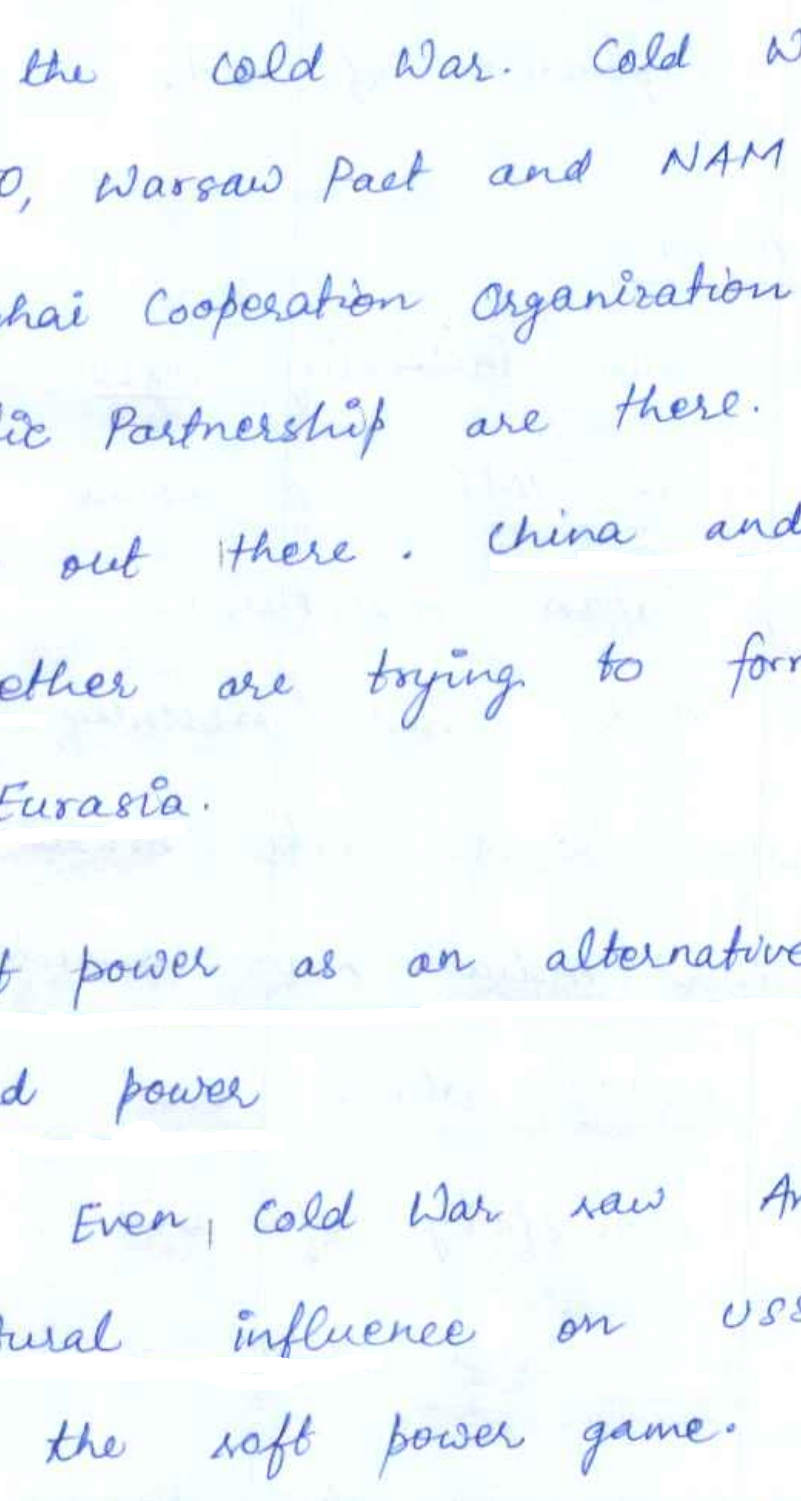 the cold War. Cold W
O, Warsaw Pact and NAM
hai Cooperation Organization
ic Partnership are there.
out there. China and
ether are trying to for
Eurasia.
f power as an alternative
d power
Even, Cold War saw Am
tural influence on USS
the soft power game.